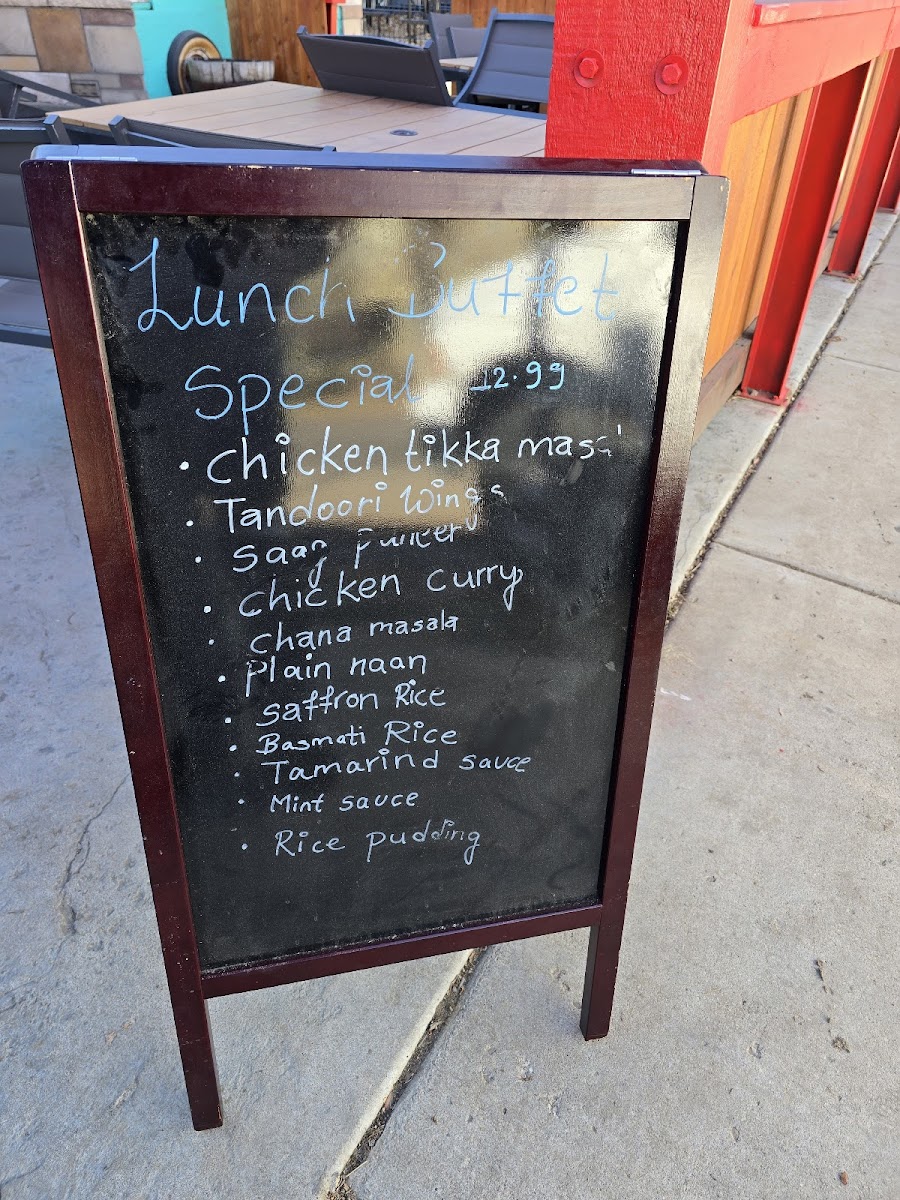 Lunch Buffet
Special 12.99
• Chicken tikka masal
• Tandoori Wings
• Saag paneer
• Chicken curry
• Chana masala
• Plain naan
• Saffron Rice
• Basmati Rice
• Tamarind sauce
• Mint sauce
• Rice pudding